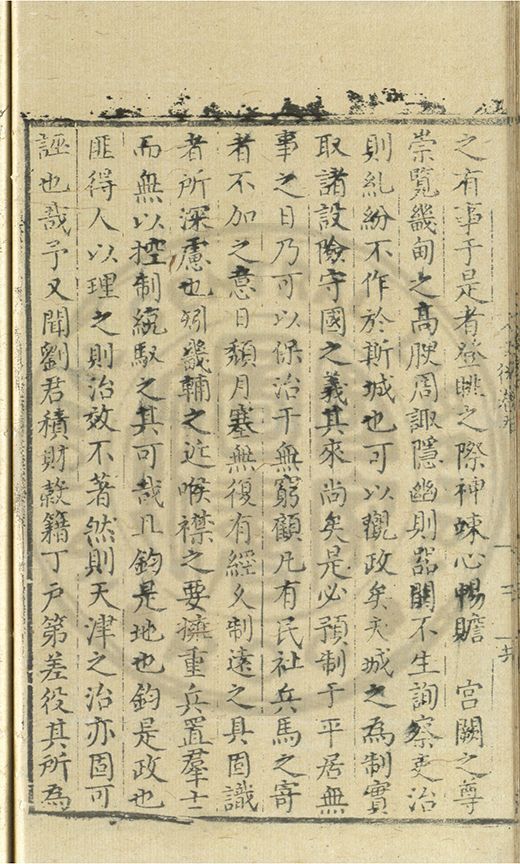 之有事于是者登眺之際神竦心暢瞻　宮闕之尊
崇覽畿甸之高腴周諏隱幽則嚚閧不生詢察吏治
則紊紛不作於斯城也可以觀政矣夫城之為制實
取諸設險守國之義其來尚矣是必預制于平居無
事之日乃可以保治于無窮顧凡有民社兵馬之寄
者不加之意日頹月塞無復有經久制遠之具固識
者所深慮也矧畿輔之近喉襟之要擁重兵置羣士
而無以控制統馭之其可哉且鈞是地也鈞是政也
匪得人以理之則治效不著然則天津之治亦固可
誣也哉予又聞劉君積財穀籍丁戶第差役其所為